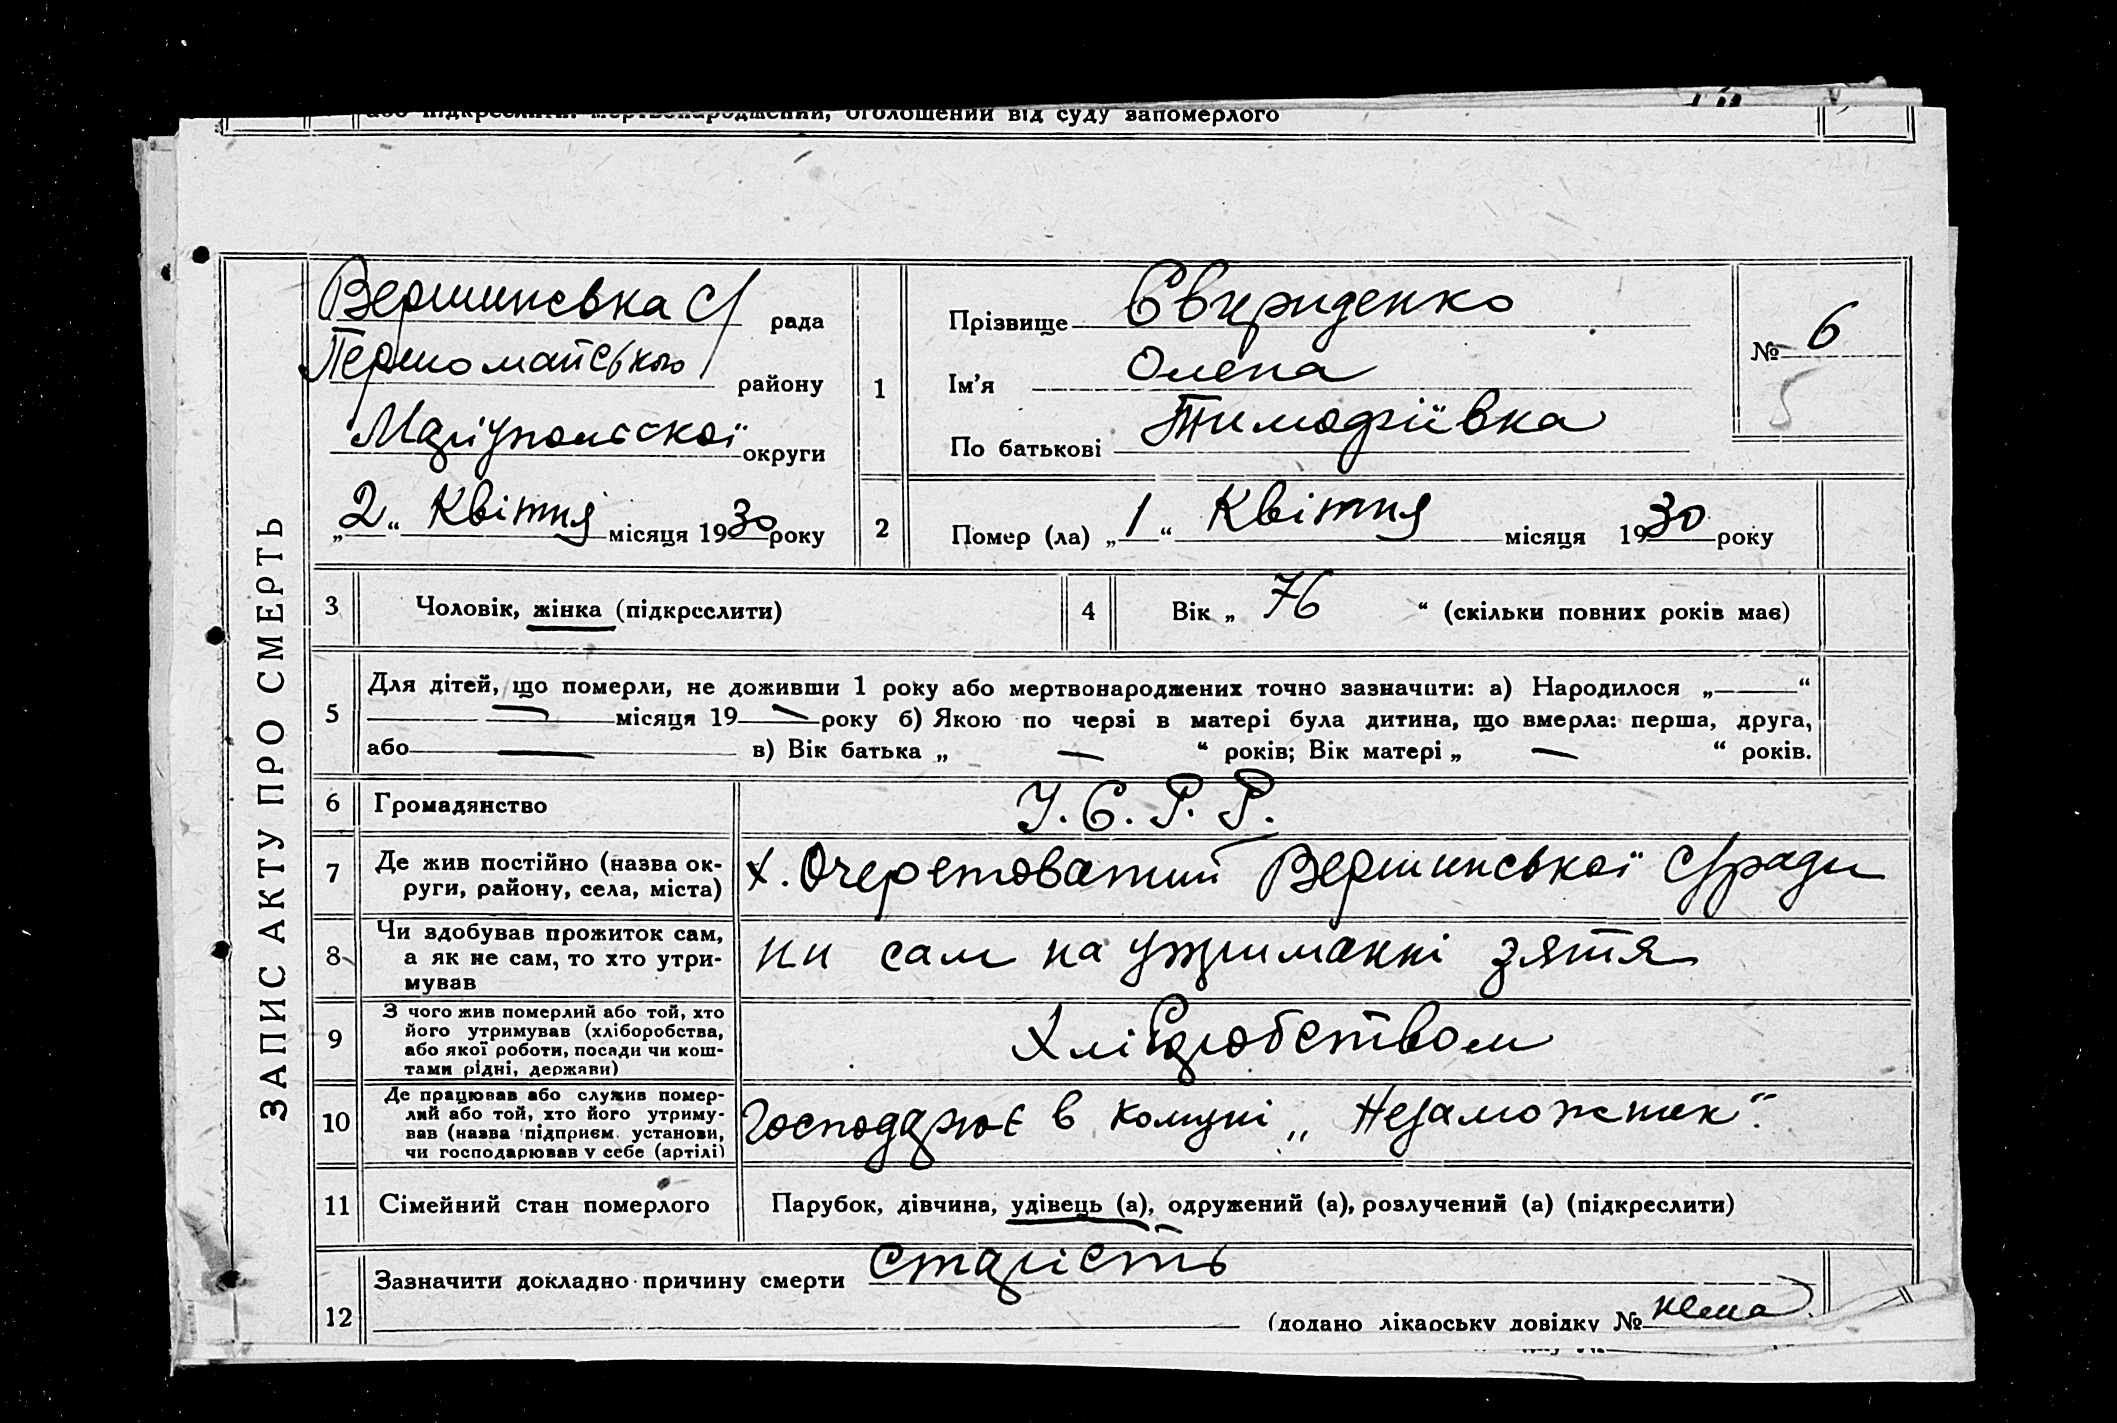 або підкреслити: мертвонароджений, оголошений від суду запомерлого
ЗАПИС АКТУ ПРО СМЕРТЬ
Вершинсвка С/рада
Першомайського району
Маріупольської округи
„2“ Квітня місяця 1930 року
1
Прізвище Євчриденко
Ім’я Олена
По батькові Тимофіївна
№ 6
5
2
Помер (ла) „1“ Квітня місяця 1930 року
3 Чоловік, жінка (підкреслити)
4 Вік „76“ (скільки повних років має)
5 Для дітей, що померли, не доживши 1 року або мертвонароджених точно зазначити: а) Народилося „—“
— місяця 19— року б) Якою по черзі в матері була дитина, що вмерла: перша, друга,
або — в) Вік батька „ — “ років; Вік матері „ — “ років.
6 Громадянство У.С.Р.Р.
7 Де жив постійно (назва ок-
руги, району, села, міста)
х. Очеретоватий Вершинської с/ради
8 Чи здобував прожиток сам,
а як не сам, то хто утри-
мував
ни сам на утриманні зятя
9 З чого жив померлий або той, хто
його утримував (хліборобства,
або якої роботи, посади чи кош-
тами рідні, держави)
Хліборобством
10 Де працював або служив помер-
лий або той, хто його утриму-
вав (назва підприєм. установи,
чи господарював у себе (артілі)
Господарює в комуні „Незаможник“.
11 Сімейний стан померлого Парубок, дівчина, удівець (а), одружений (а), розлучений (а) (підкреслити)
12 Зазначити докладно причину смерти старість
(додано лікарську довідку № нема)